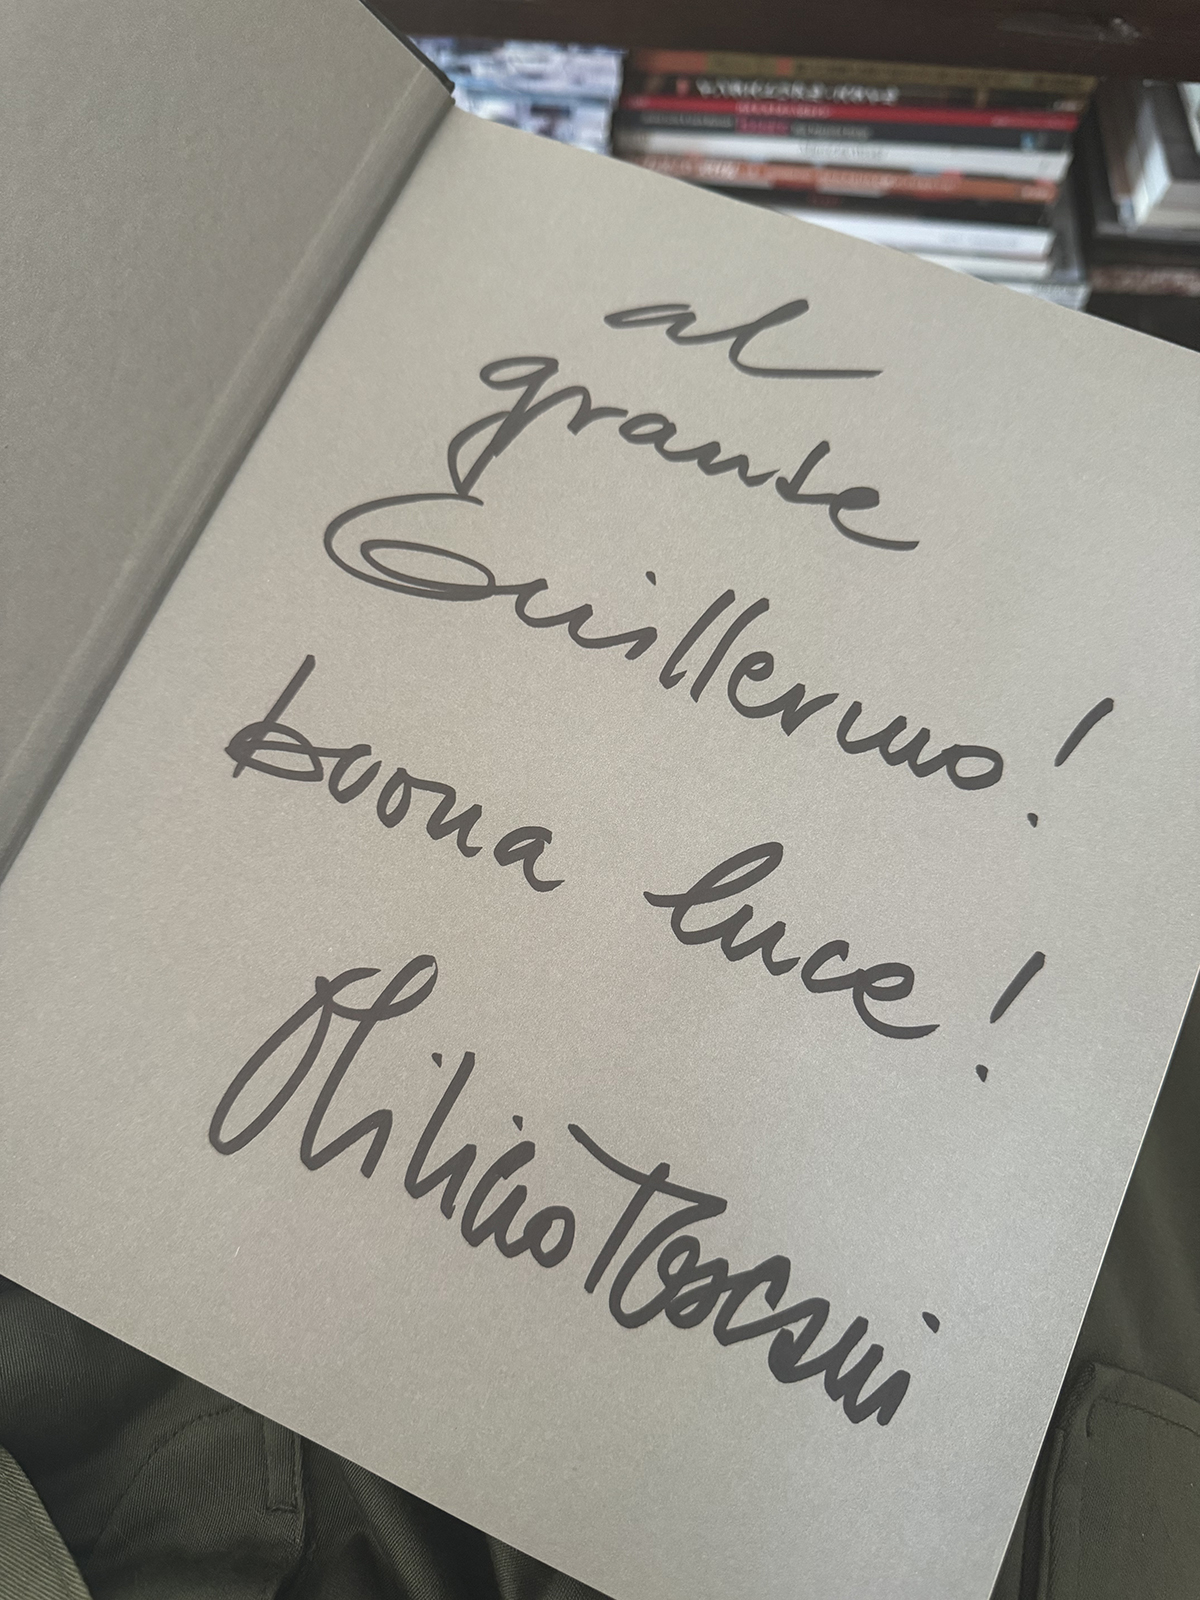 al
grande
Guillermo!
buona luce!
Oliviero Toscani